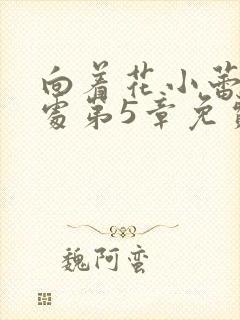 向着花小蕾
处第5章免费
魏阿蛮